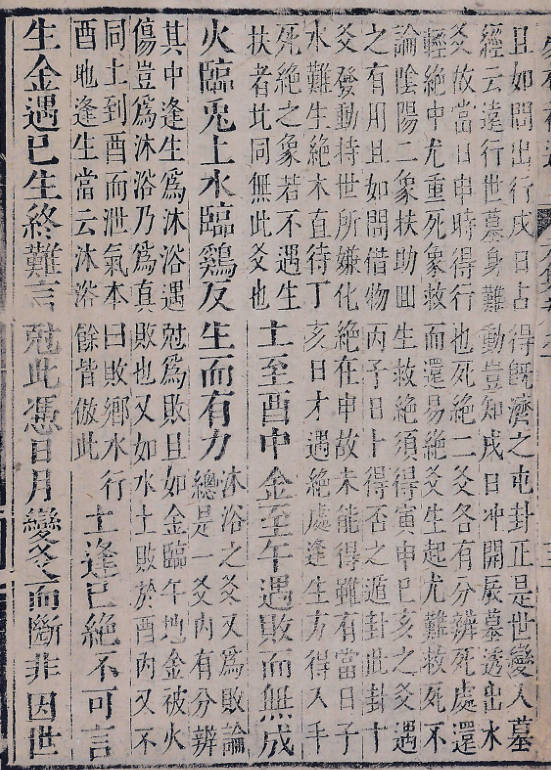 且如問出行戌日占得旣濟之屯卦正是世變入墓
經云遠行世墓身難動豈知戌日冲開辰墓透出水
爻故當日申時得行也死絕二爻各有分辨死處還
輕絕中尤重死象救而還易絕爻生起尤難救死不
論陰陽二象扶助囬生救絕須得寅申巳亥之爻遇
之有用且如問借物丙子日卜得否之遁卦此卦才
爻發動持世所嫌化絕在申故未能得雖有當日子
水難生絕木直待丁亥日才遇絕處逢生方得入手
死絕之象若不遇生
扶者比同無此爻也
土至酉中金至午遇敗而無成
火臨兎上水臨鷄反生而有力
沐浴之爻又爲敗論
總是一爻內有分辨
其中逢生爲沐浴遇尅爲敗且如金臨午地金被火
傷豈爲沐浴乃爲真敗也又如水土敗於酉內又不
同土到酉而泄氣本曰敗鄉水行
酉地逢生當云沐浴餘皆倣此
土逢巳絕不可言
生金遇巳生終難言尅此憑日月變爻而斷非因世